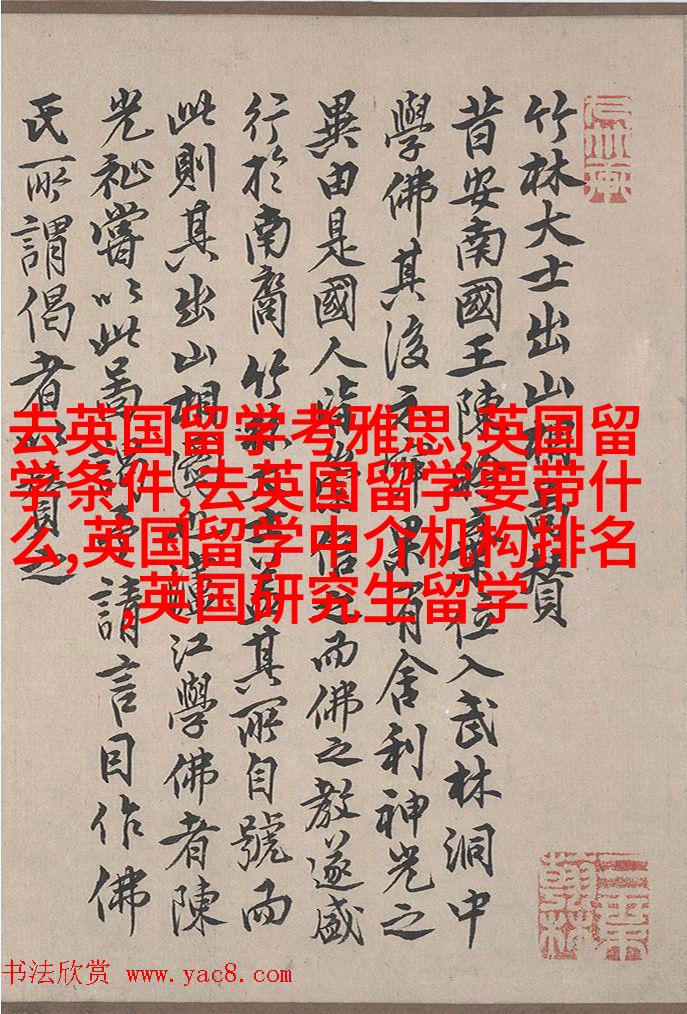 竹林大士出山相贊
昔安南國王陳位入武林洞中
學佛其後示果有舍利神光之
異由是國人皆信之而佛之教遂盛
行於南裔竹其所自號而
此則其出山相江學佛者陳
光祉嘗以此啚請言目作佛
氏所謂偈者以贊之
去英国留学考雅思,英国留
学条件,去英国留学要带什
么,英国留学中介机构排名
,英国研究生留学
书法欣赏 www.yac8.com